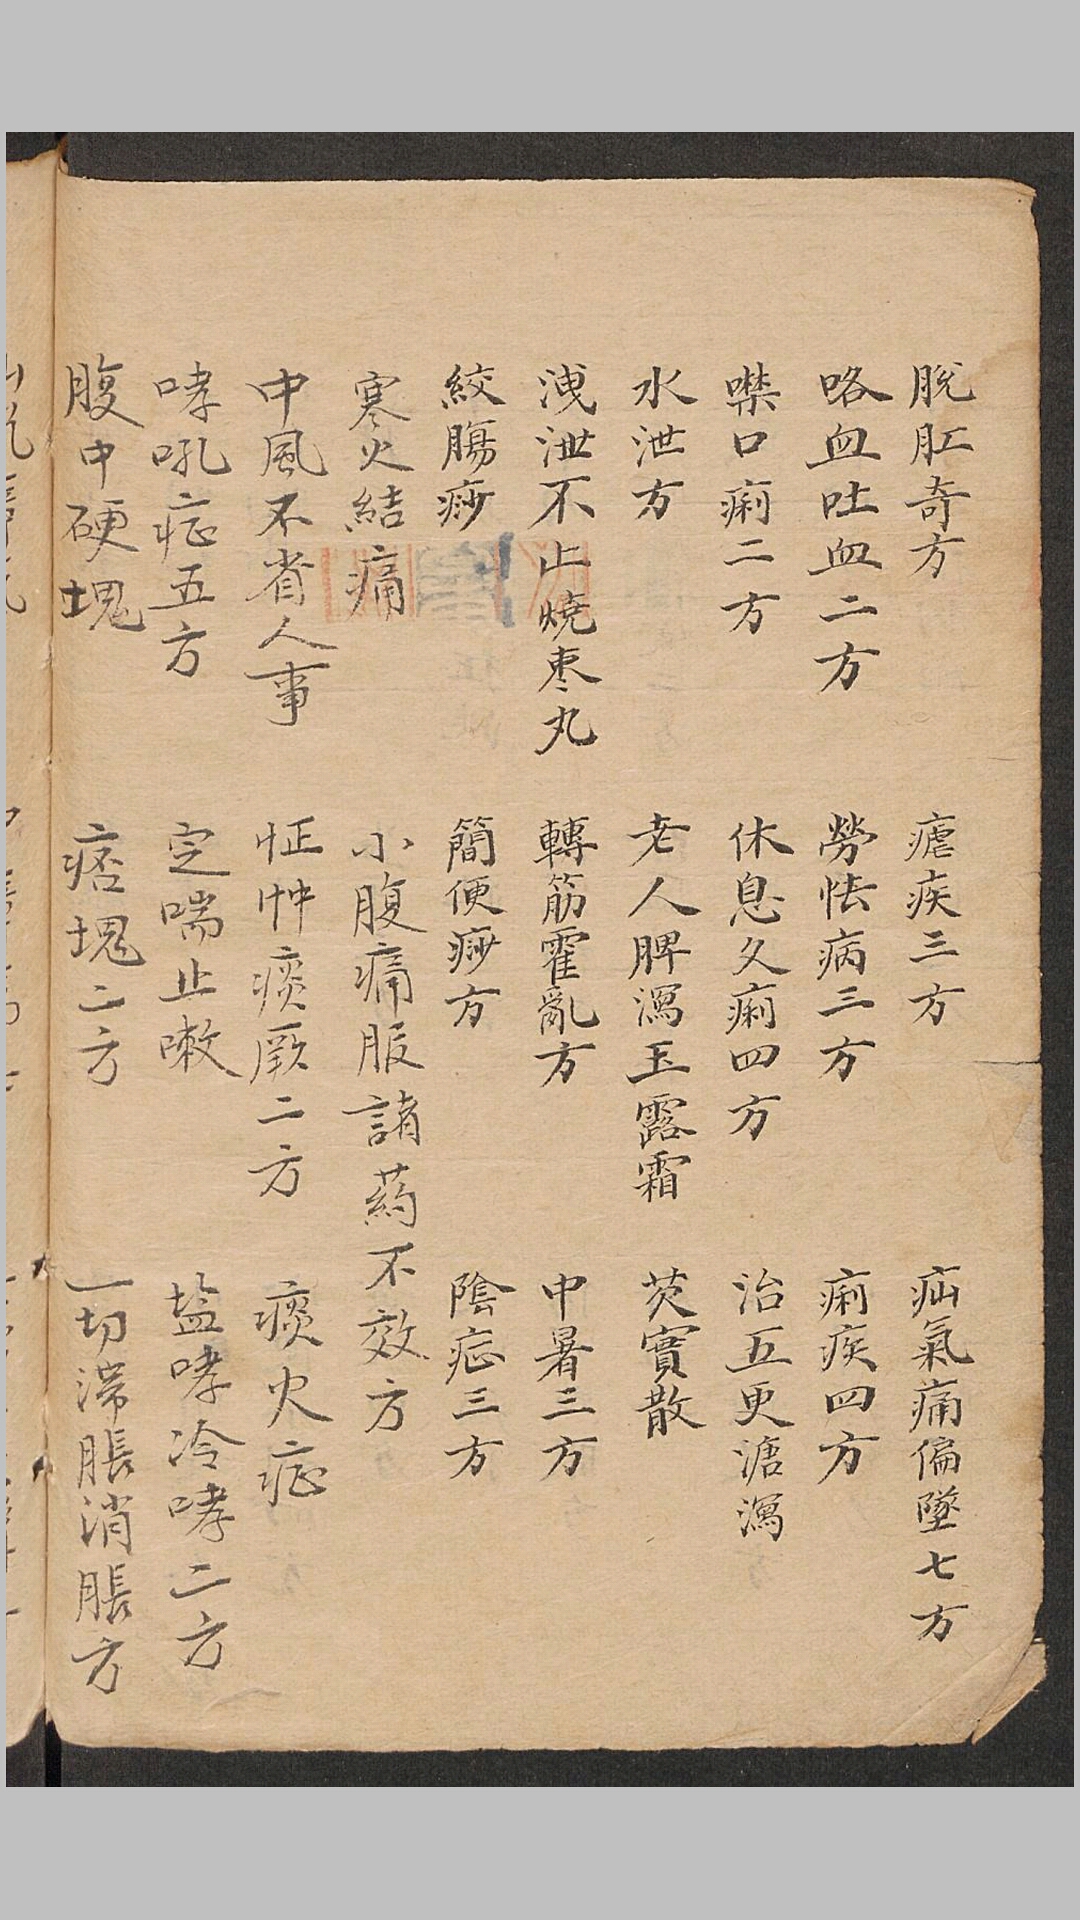 脫肛奇方 瘧疾三方 疝氣痛偏墜七方
咯血吐血二方 勞怯病三方 痢疾四方
噤口痢二方 休息久痢四方 治五更溏瀉
水泄方 老人脾瀉玉露霜 芡實散
洩泄不止燒枣丸 轉筋霍亂方 中暑三方
絞腸痧 簡便痧方 陰症三方
寒火結痛 小腹痛服諸药不效方
中風不省人事 怔忡痰厥二方 痰火症
哮吼症五方 定喘止嗽 盐哮冷哮二方
腹中硬塊 痞塊二方 一切滞脹消脹方